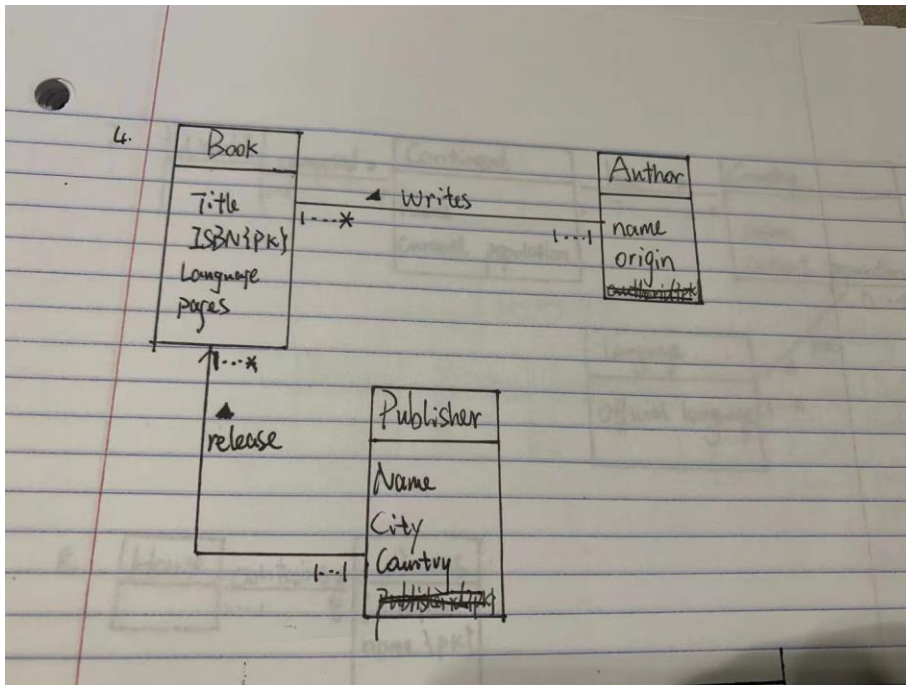 4.
Book
Title
ISBN{PK}
Language
pages
Writes
1...*
1...1
Author
name
origin
1...*
release
1...1
Publisher
Name
City
Country